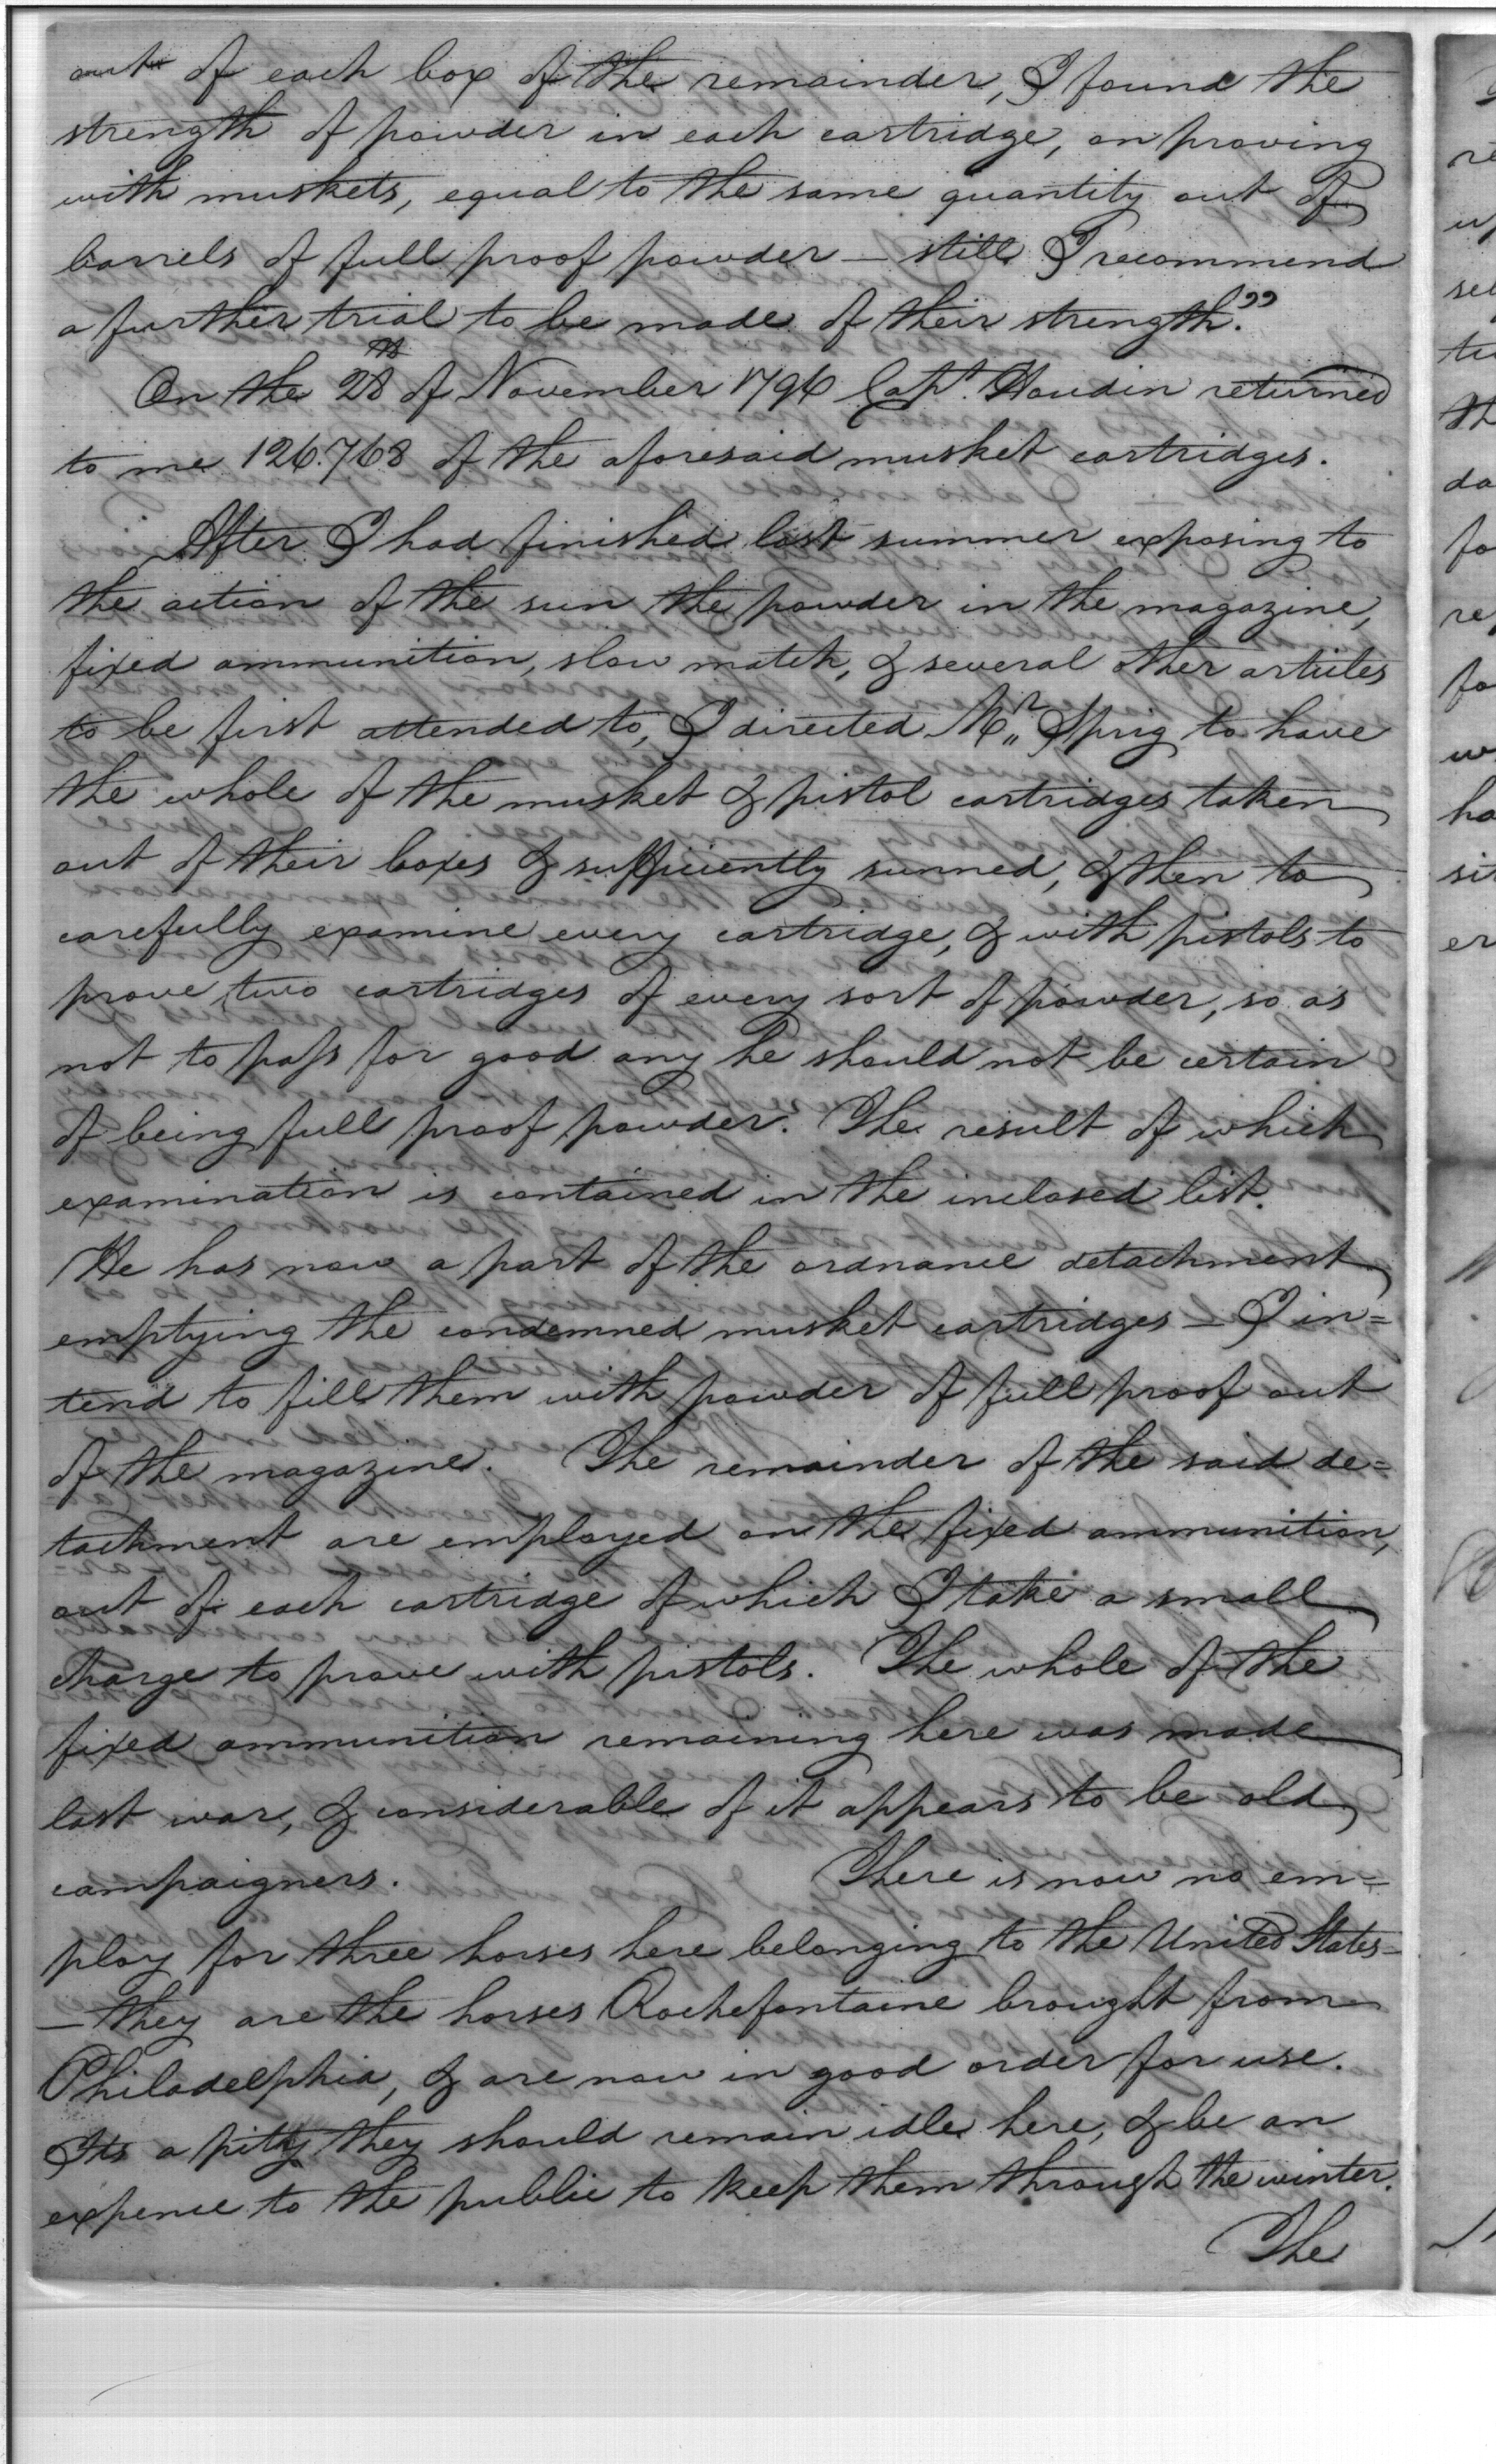 out of each box of the remainder, I found the
strength of powder in each cartridge, on proving
with muskets, equal to the same quantity out of
barrels of full proof powder — still I recommend
a further trial to be made of their strength."
On the 28th of November 1796 Capt. Houdin returned
to me 126.768 of the aforesaid musket cartridges.
After I had finished last summer exposing to
the action of the sun the powder in the magazine,
fixed ammunition, slow match, & several other articles
to be first attended to, I directed Mr. Sprig to have
the whole of the musket & pistol cartridges taken
out of their boxes & sufficiently sunned, & then to
carefully examine every cartridge, & with pistols to
prove two cartridges of every sort of powder, so as
not to pass for good any he should not be certain
of being full proof powder. The result of which
examination is contained in the inclosed list.
He has now a part of the ordnance detachment
emptying the condemned musket cartridges — I in=
tend to fill them with powder of full proof out
of the magazine. The remainder of the said de=
tachment are employed on the fixed ammunition,
out of each cartridge of which I take a small
charge to prove with pistols. The whole of the
fixed ammunition remaining here was made
last war, & considerable of it appears to be old
campaigners. There is now no em=
ploy for three horses here belonging to the United States—
— they are the horses Rochefontaine brought from
Philadelphia, & are now in good order for use.
Its a pitty they should remain idle here, & be an
expence to the public to keep them through the winter.
The